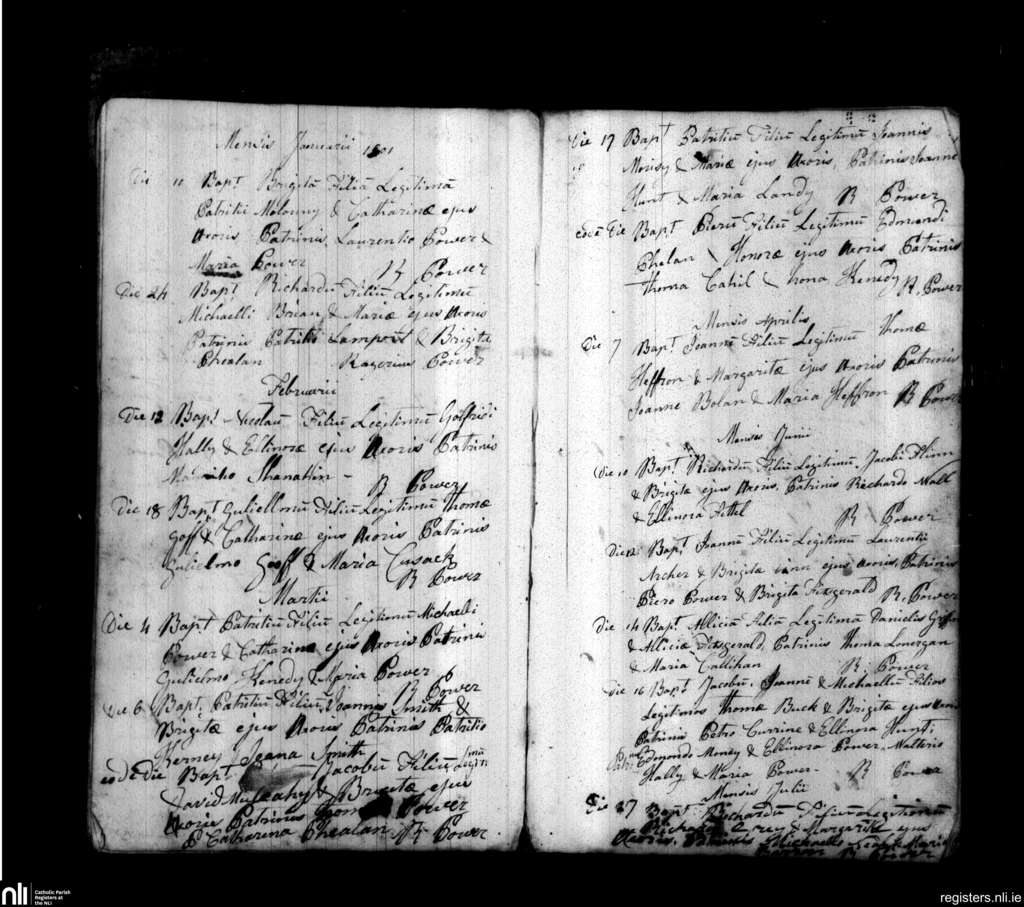 Mensis Januarii 1801
Die 11 Bapt Brigitã Filiã Legitimã
Patritii Molouny & Catharinæ ejus
Uxoris Patrinis Laurentio Power &
Maria Power R Power
Die 24 Bapt Richardũ Filiũ Legitimũ
Michaelli Brian & Mariæ ejus Uxoris
Patrinis Patritio Lamport & Brigita
Phealan Rogerius Power
Februarii
Die 12 Bapt Nicolaũ Filiũ Legitimũ Golfridi
Hally & Ellinoræ ejus Uxoris Patrinis
Shanahan - R Power
Die 18 Bapt Guliellmũ Filiũ Legitimũ Thomæ
Goff & Catharinæ ejus Uxoris Patrinis
Gulielmo Goff & Maria Cusack
R Power
Martii
Die 4 Bapt Patritiũ Filiũ Legitimũ Michaelli
Power & Catharinæ ejus Uxoris Patrinis
Gulielmo Kenedy & Maria Power
R Power
Die 6 Bapt, Patritiũ Filiũ, Joannis Smith &
Brigitæ ejus Uxoris Patrinis Patritio
Kerney Joana Smith
eodĕ die Bapt Jacobũ Filiũ Legitmũ
David & Brigitæ ejus
Uxoris Patrinis Power
& Catherina Phealan R Power
Die 19 Bapt Patritiũ Filiũ Legitimũ Joannis
Morisy & Mariæ ejus Uxoris, Patrinis Joanne
Hunt & Maria Landy R Power
eodĕ Die Bapt Pierũ Filiũ Legitimũ Edmondi
Phelan & Honoræ ejus Uxoris Patrinis
Thoma Cahil & hona Kenedy R. Power
Mensis Aprilis
Die 7 Bapt Joannĕ Filiũ Legitimũ Thomæ
Heffron & Margaritæ ejus Uxoris Patrinis
Joanne Bolan & Maria Heffron R Power
Mensis Junii
Die 10 Bapt Richardũ Filiũ Legitimũ Jacobi Flinn
& Brigitæ ejus Uxoris, Patrinis Richardo Wall
& Ellinora Attel R Power
Die 12 Bapt Joannĕ Filiũ Legitimũ Laurentii
Archer & Brigitæ ejus Uxoris, Patrinis
Piero Power & Brigita Fitzgerald R. Power
Die 14 Bapt Alliciã Filiã Legitimã Danielis
& Alliciæ Fitzgerald, Patrinis Thoma Lonergan
& Maria Callihan R. Power
Die 16 Bapt Jacobũ, Joannĕ & Michaellĕ Filios
Legitimos Thomæ Buck & Brigitæ ejus Uxoris
Patrinis Petro Currine & Ellinora Hunt;
Edmondo Money & Ellinora Power, Walterio
Hally & Maria Power - R Power
Mensis Julii
Die 27 Bapt Richardũ Filiũ Legitimũ
Richardi & Margaritæ ejus
Uxoris, Patrinis Michaelle & Maria
R Power
nli Catholic Parish
Registers at
the NLI
registers.nli.ie